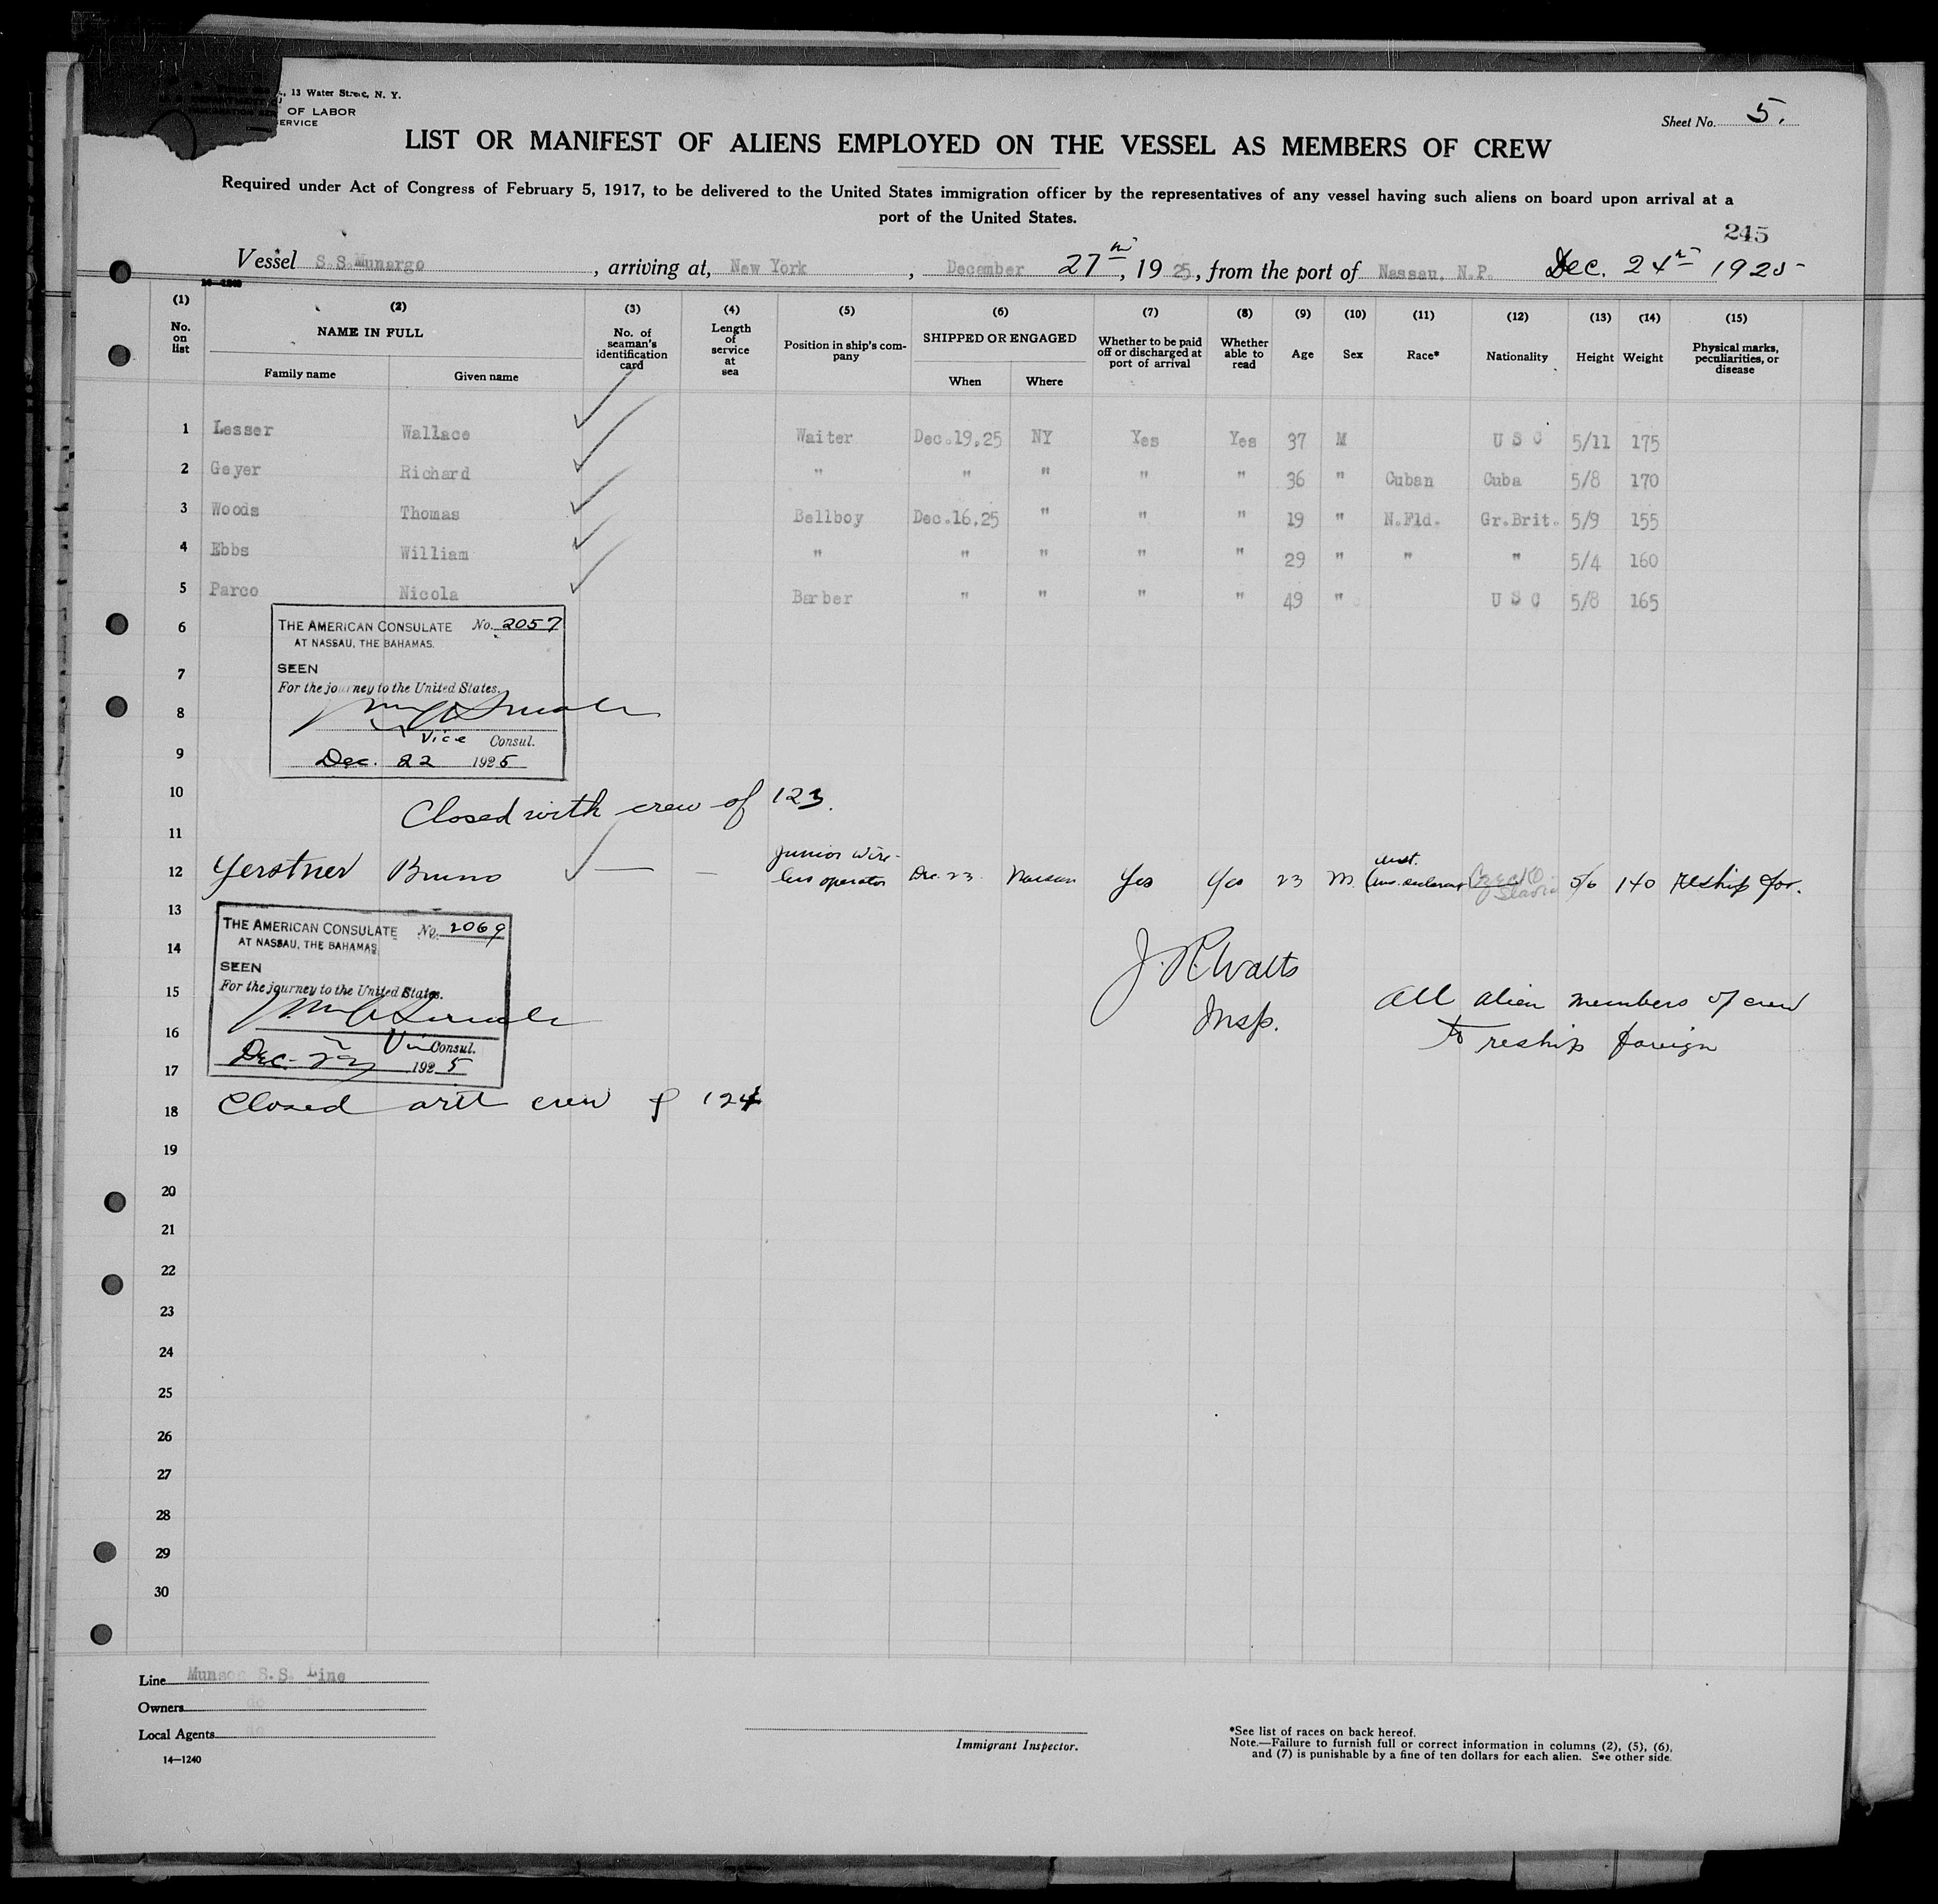 , 13 Water Street, N. Y.
OF LABOR
SERVICE
Sheet No. 5.
LIST OR MANIFEST OF ALIENS EMPLOYED ON THE VESSEL AS MEMBERS OF CREW
Required under Act of Congress of February 5, 1917, to be delivered to the United States immigration officer by the representatives of any vessel having such aliens on board upon arrival at a
port of the United States.
245
Vessel S.S.Munargo, arriving at, New York, December 27th, 1925, from the port of Nassau, N.P. Dec. 24th 1925
(1) (2) (3) (4) (5) (6) (7) (8) (9) (10) (11) (12) (13) (14) (15)
No. on list
NAME IN FULL
Family name Given name
No. of seaman's identification card
Length of service at sea
Position in ship's company
SHIPPED OR ENGAGED
When Where
Whether to be paid off or discharged at port of arrival
Whether able to read
Age Sex Race* Nationality Height Weight
Physical marks, peculiarities, or disease
1 Lesser Wallace Waiter Dec.19,25 NY Yes Yes 37 M U S C 5/11 175
2 Geyer Richard " " " " " 36 " Cuban Cuba 5/8 170
3 Woods Thomas Bellboy Dec.16,25 " " " 19 " N.Fld. Gr.Brit. 5/9 155
4 Ebbs William " " " " " 29 " " " 5/4 160
5 Parco Nicola Barber " " " " 49 " U S C 5/8 165
6
THE AMERICAN CONSULATE No. 2057
AT NASSAU, THE BAHAMAS.
7
SEEN
For the journey to the United States.
8
Vice Consul.
9
Dec. 22 1925
10
Closed with crew of 123.
11
12 Gerstner Bruno — — Junior Wireless operator Dec. 23 Nassau Yes Yes 23 M. Czecho Slavia 5/6 140 Reship for.
13
THE AMERICAN CONSULATE No. 2069
AT NASSAU, THE BAHAMAS
14
SEEN
J. R. Watts
15
For the journey to the United States.
All alien members of crew
16
Insp.
to reship foreign
Consul.
Dec. 23 1925
17
18 Closed with crew of 124
19
20
21
22
23
24
25
26
27
28
29
30
Line Munson S.S. Line
Owners do
Local Agents do
14—1240
Immigrant Inspector.
*See list of races on back hereof.
Note.—Failure to furnish full or correct information in columns (2), (5), (6),
and (7) is punishable by a fine of ten dollars for each alien. See other side.